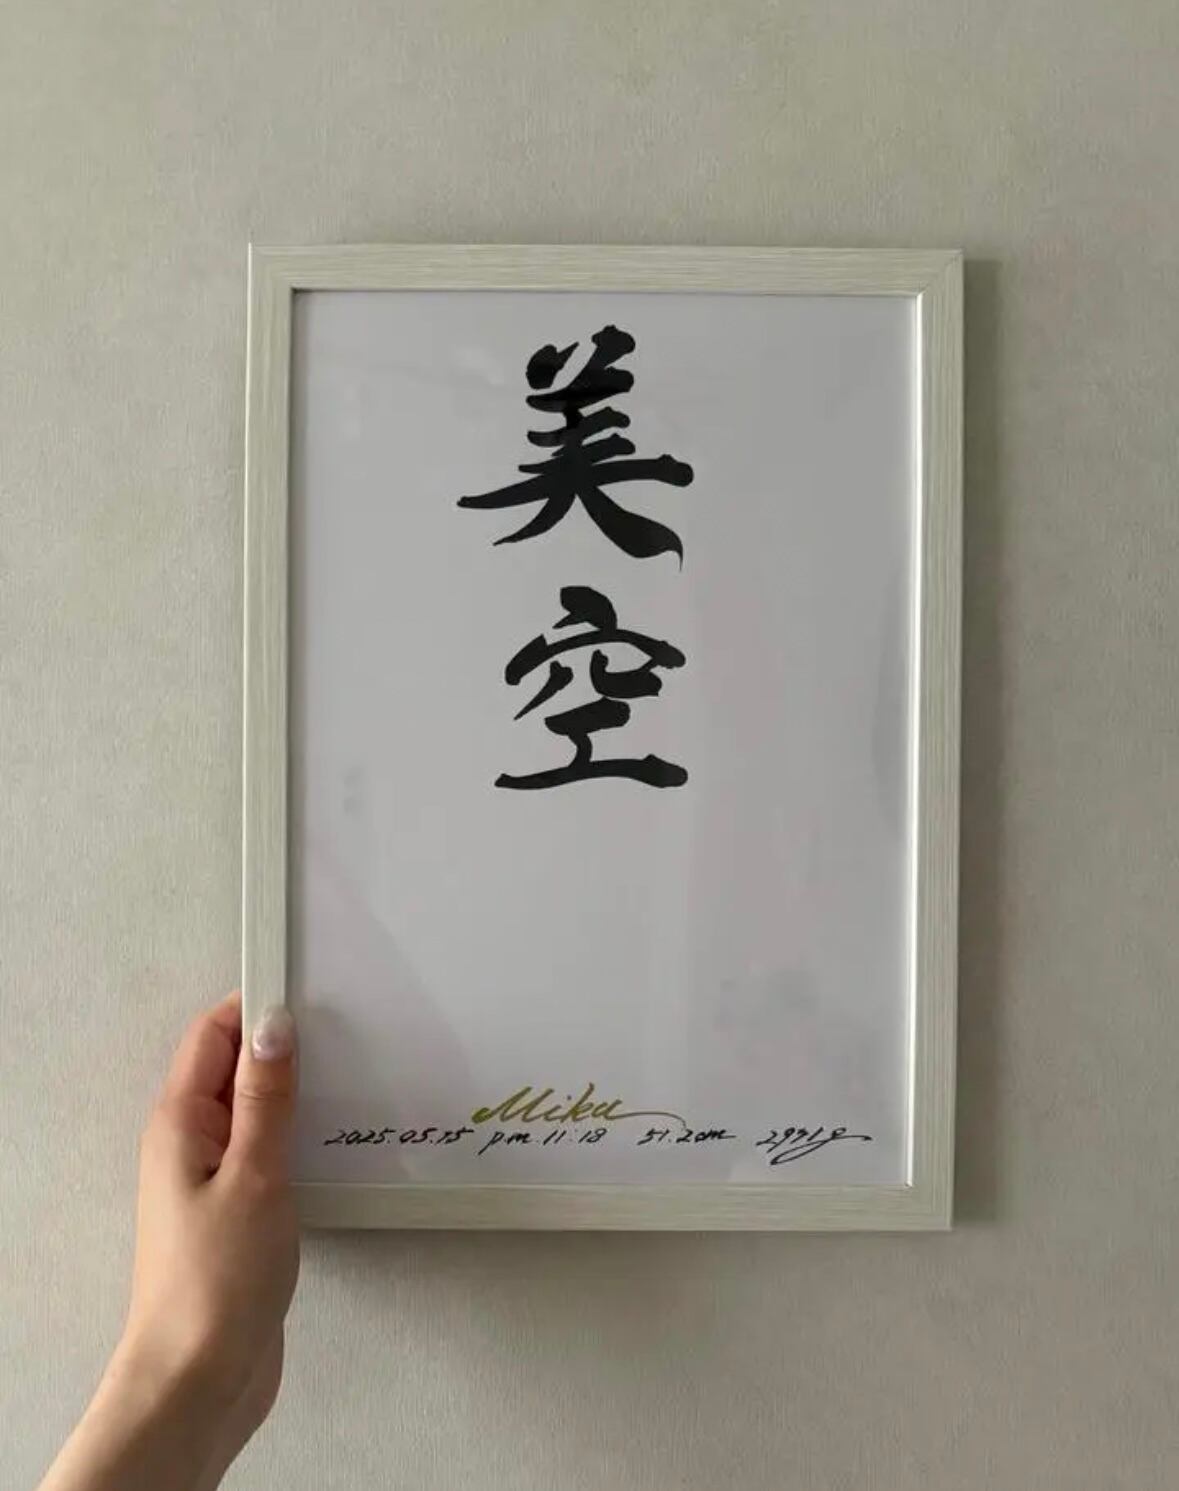 美空
Mika
2025.05.15 pm.11:18 51.2cm 2971g